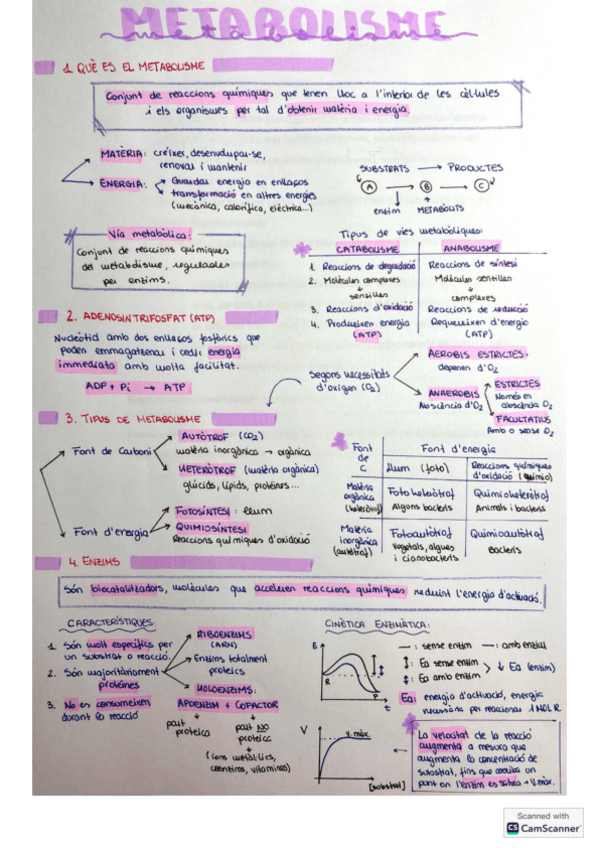 METABOLISME
metabolisme
1. QUÈ ES EL METABOLISME
Conjunt de reaccions químiques que tenen lloc a l'interior de les cèl·lules
i els organismes per tal d'obtenir matèria i energia.
MATÈRIA: créixer, desenvolupar-se,
renovar i mantenir
ENERGIA: Guardar energia en enllaços
transformació en altres energies
(mecànica, calorífica, elèctrica...)
SUBSTRATS → PRODUCTES
A → B → C
enzim METABÒLITS
Vía metabòlica:
Conjunt de reaccions químiques
del metabolisme, regulades
per enzims.
Tipus de vies metabòliques:
CATABOLISME ANABOLISME
1. Reaccions de degradació Reaccions de síntesi
2. Molècules complexes Molècules senzilles
↓ ↓
senzilles complexes
3. Reaccions d'oxidació Reaccions de reducció
4. Produeixen energia Requereixen d'energia
(ATP) (ATP)
2. ADENOSINTRIFOSFAT (ATP)
Nucleòtid amb dos enllaços fosfòrics que
poden emmagatzemar i cedir energia
immediata amb molta facilitat.
ADP + Pi → ATP
Segons necessitats
d'oxigen (O2)
AEROBIS ESTRICTES:
depenen d'O2
ANAEROBIS
Absència d'O2
ESTRICTES
Només en
absència O2
FACULTATIUS
Amb o sense O2
3. TIPUS DE METABOLISME
Font de Carboni
AUTÒTROF (CO2)
matèria inorgànica → orgànica
HETERÒTROF (matèria orgànica)
glúcids, lípids, proteïnes...
Font d'energia
FOTOSÍNTESI: llum
QUIMIOSÍNTESI
Reaccions químiques d'oxidació
Font de C Font d'energia
llum (foto) Reaccions químiques d'oxidació (quimio)
Matèria orgànica (heteròtrof) Fotoheteròtrof Quimioheteròtrof
Alguns bacteris Animals i bacteris
Matèria inorgànica (autòtrof) Fotoautòtrof Quimioautòtrof
Vegetals, algues i cianobacteris Bacteris
4. ENZIMS
Són biocatalitzadors, molècules que acceleren reaccions químiques reduint l'energia d'activació.
CARACTERÍSTIQUES:
1. Són molt específics per
un substrat o reacció.
2. Són majoritàriament
proteïnes
3. No es consumeixen
durant la reacció
RIBOENZIMS
(ARN)
Enzims totalment
proteics
HOLOENZIMS:
APOENZIM + COFACTOR
part proteica part NO proteica
(ions metàl·lics,
coenzims, vitamines)
CINÈTICA ENZIMÀTICA:
E
R
P
t
: sense enzim : amb enzim
: Ea sense enzim
: Ea amb enzim
↓ Ea (enzim)
Ea: energia d'activació, energia
necessària per reaccionar 1 MOL R.
V
V. màx.
[substrat]
La velocitat de la reacció
augmenta a mesura que
augmenta la concentració de
substrat, fins que arriba un
punt en l'enzim es satura → V. màx.
Scanned with
CS CamScanner